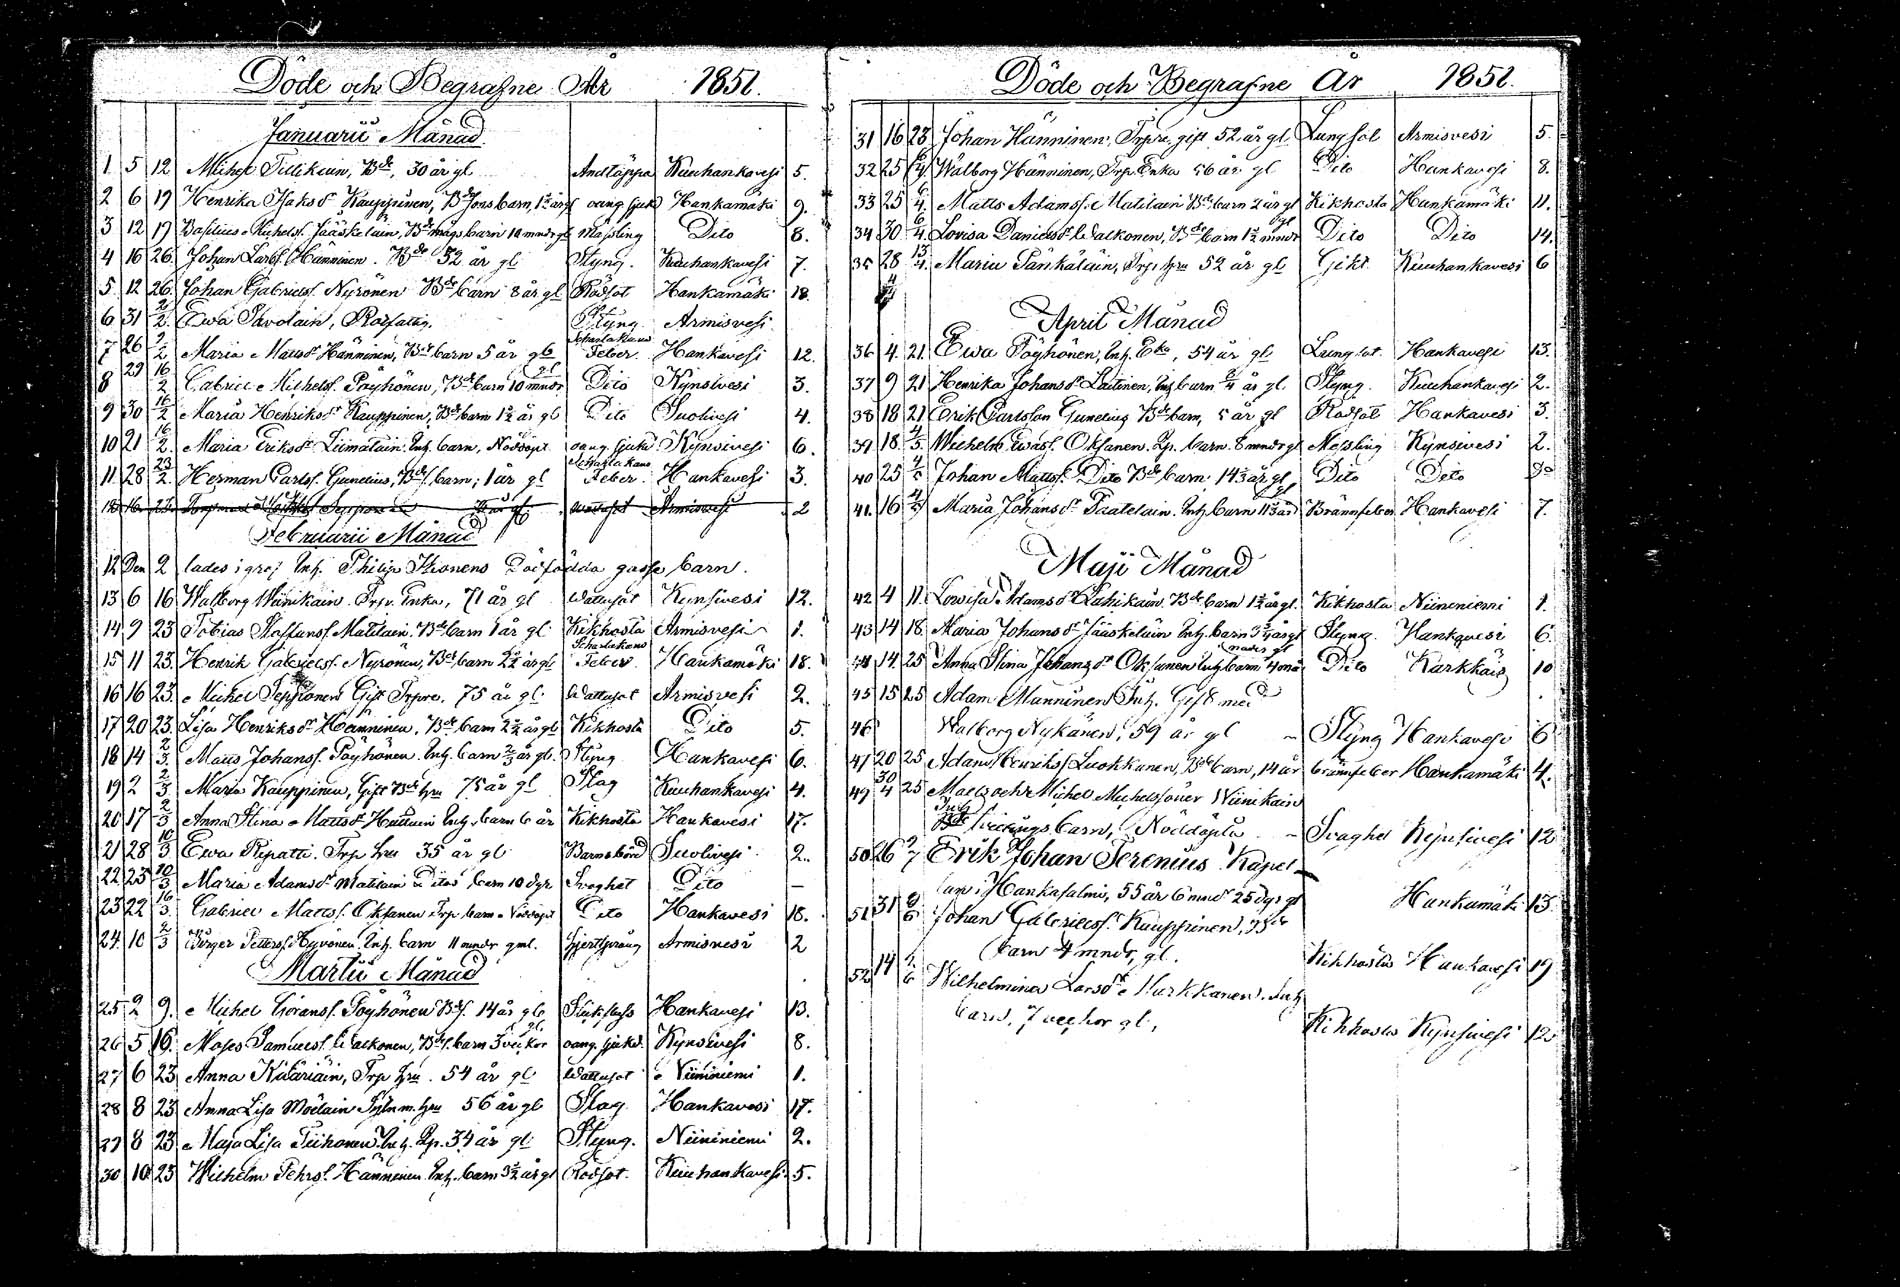 Döde och Begrafne År 1851.
Januarii Månad
1 5 12 Michel Tillikain, Bde, 30 år gl Andtäppa Kuuhankavesi 5.
2 6 19 Henrika Isaksdr Kauppinen, Bde sons barn, 1½ år gl oang. sjukd Hankamäki 9.
3 12 19 Basilius Michelss. Jääskeläin, Bde mågs barn 10 mndr gl Mässling Dito 8.
4 16 26 Johan Larss. Hänninen. Bde 52 år gl Styng. Kuuhankavesi 7.
5 12 26 Johan Gabrielss. Nyrönen Bde barn 8 år gl Rödsot Hankamäki 18.
6 31 2/2 Ewa Savolain, Rotfattig. Styng Armisvesi
7 26 9/2 Maria Matsdr Hänninen, Bde barn 5 år gl Scharlakans Feber. Hankavesi 12.
8 29 16/2 Gabriel Michelss. Pöyhönen, Bde barn 10 mndr gl Dito Kynsivesi 3.
9 30 16/2 Maria Henriksdr Kauppinen, Bde barn 1½ år gl Dito Suolivesi 4.
10 21 16/2 Maria Eriksdr Liimatain Inh. barn, Nöddöpt oang. sjukd. Kynsivesi 6.
11 28 23/2 Herman Carlss. Gunelius, Bds. barn, 1 år gl Scharlakans Feber. Hankavesi 3.
Armisvesi 2
Februarii Månad
12 Den 2 lades i graf Inh. Philip Ikonens Dödfödda gosse barn.
13 6 16 Walborg Wiinikain. Trp. Enka, 71 år gl Wattusot Kynsivesi 12.
14 9 23 Tobias Staffanss. Matilain. Bde barn 1 år gl Kikhosta Armisvesi 1.
15 11 23 Henrik Gabrielss. Nyrönen, Bde barn 2½ år gl Scharlakans Feber Hankamäki 18.
16 16 23 Michel Seppönen Gift Trpre. 75 år gl. Wattusot Armisvesi 2.
17 20 23 Lisa Henriksdr Hänninen, Bde barn 2½ år gl Kikhosta Dito 5.
18 14 2/3 Matts Johanss. Pöyhönen. Inh. barn ⅔ år gl. Styng Hankavesi 6.
19 2 2/3 Maria Kauppinen, Gift Bde hru 75 år gl Slag Kuuhankavesi 4.
20 17 2/3 Anna Stina Mattsdr Huttuin Inh. barn 6 år Kikhosta Hankavesi 17.
21 28 10/3 Ewa Ripatti. Trp hru 35 år gl Barnsbörd Suolivesi 2.
22 25 10/3 Maria Adamsdr Matilain Ditos barn 10 dgr Svaghet Dito —
23 22 16/3 Gabriel Mattss. Oksanen Trp barn Nöddöpt Dito Hankavesi 18.
24 10 2/3 Börger Petterss. Hyvönen. Inh. barn 11 mndr gml. Hjertsprång Armisvesi 2
Martii Månad
25 2 9 Michel Göranss. Pöyhönen Bds. 14 år gl Hankavesi 13.
26 5 16 Moses Samuelss. Walkonen, Bds. barn 3 veckor gl oang. sjukd. Kynsivesi 8.
27 6 23 Anna Kutariäin, Trp hru. 54 år gl Wattusot Niininiemi 1.
28 8 23 Anna Lisa Moilain Inh. hru 56 år gl Slag Hankavesi 17.
29 8 23 Maja Lisa Tiihonen Inh. Qp. 34 år gl Styng. Niininiemi 2.
30 10 23 Wilhelm Pehrs. Hänninen Inh. barn 3½ år gl Rödsot. Kuuhankavesi 5.
Döde och Begrafne År 1851.
31 16 23 Johan Hänninen, Trpre. gift 52 år gl Lungsot Armisvesi 5.
32 25 6/4 Walborg Hänninen, Trp. Enka 56 år gl Dito Hankavesi 8.
33 25 6/4 Matts Adamss. Matilain Bde barn 2 år gl Kikhosta Hankamäki 11.
34 30 6/4 Lovisa Danielsdr Walkonen, Bde barn 1½ mndr gl Dito Dito 14.
35 28 13/4 Maria Pänkäläin, Trp. hru 52 år gl Gikt Kuuhankavesi 6
April Månad
36 4 21 Ewa Pöyhönen, Inh. Eka, 54 år gl Lungsot. Hankavesi 13.
37 9 21 Henrika Johansdr Laitinen, Inh barn ¾ år gl. Styng. Kuuhankavesi 2.
38 18 21 Erik Carlsson Gunelius Bde barn, 5 år gl Rödsot Hankavesi 3.
39 18 4/5 Wilhelm Ewass. Oksanen. Qp. barn. 8 mndr gl Messling Kynsivesi 2.
40 25 4/5 Johan Mattss. Dito Bde barn. 14½ år gl Dito Dito Do
41. 16 4/5 Maria Johansdr Taatelain. Inh barn 11½ år gl Brännfeber Hankavesi 7.
Maji Månad
42 4 11 Lovisa Adamsdr Laitikain. Bde barn 1½ år gl. Kikhosta Niininiemi 1.
43 14 18 Maria Johansdr Jääskeläin Inh. barn 3¼ år gl Styng. Hankavesi 6.
44 14 25 Anna Stina Johansdr Oksanen Inh barn 4 mnader gl Dito Karkkais 10
45 15 25 Adam Manninen Inh. Gift med
46 Walborg Nykänen, 59 år gl — Styng Hankavesi 6
47 20 25 Adam Henrikss. Luokkanen, Bde barn, 14 år brännfeber Hankamäki 4.
49 30/4 25 Mats och Michel Michelssöner Wiinikain
Inh tvillings barn, Nöddöpta — Svaghet Kynsivesi 12
50 26 Erik Johan Terenius Kapel-
lan i Hankasalmi, 55 år 6 mnd 25 dgr gl Hankamäki 13.
51 31 8/6 Johan Gabrielss. Kauppinen, Bde
barn 4 mndr, gl. Kikhosta Hankavesi 19
52 14 Wilhelmina Larsdr Markkanen. Inh
barn, 7 veckor gl, Kikhosta Kynsivesi 12